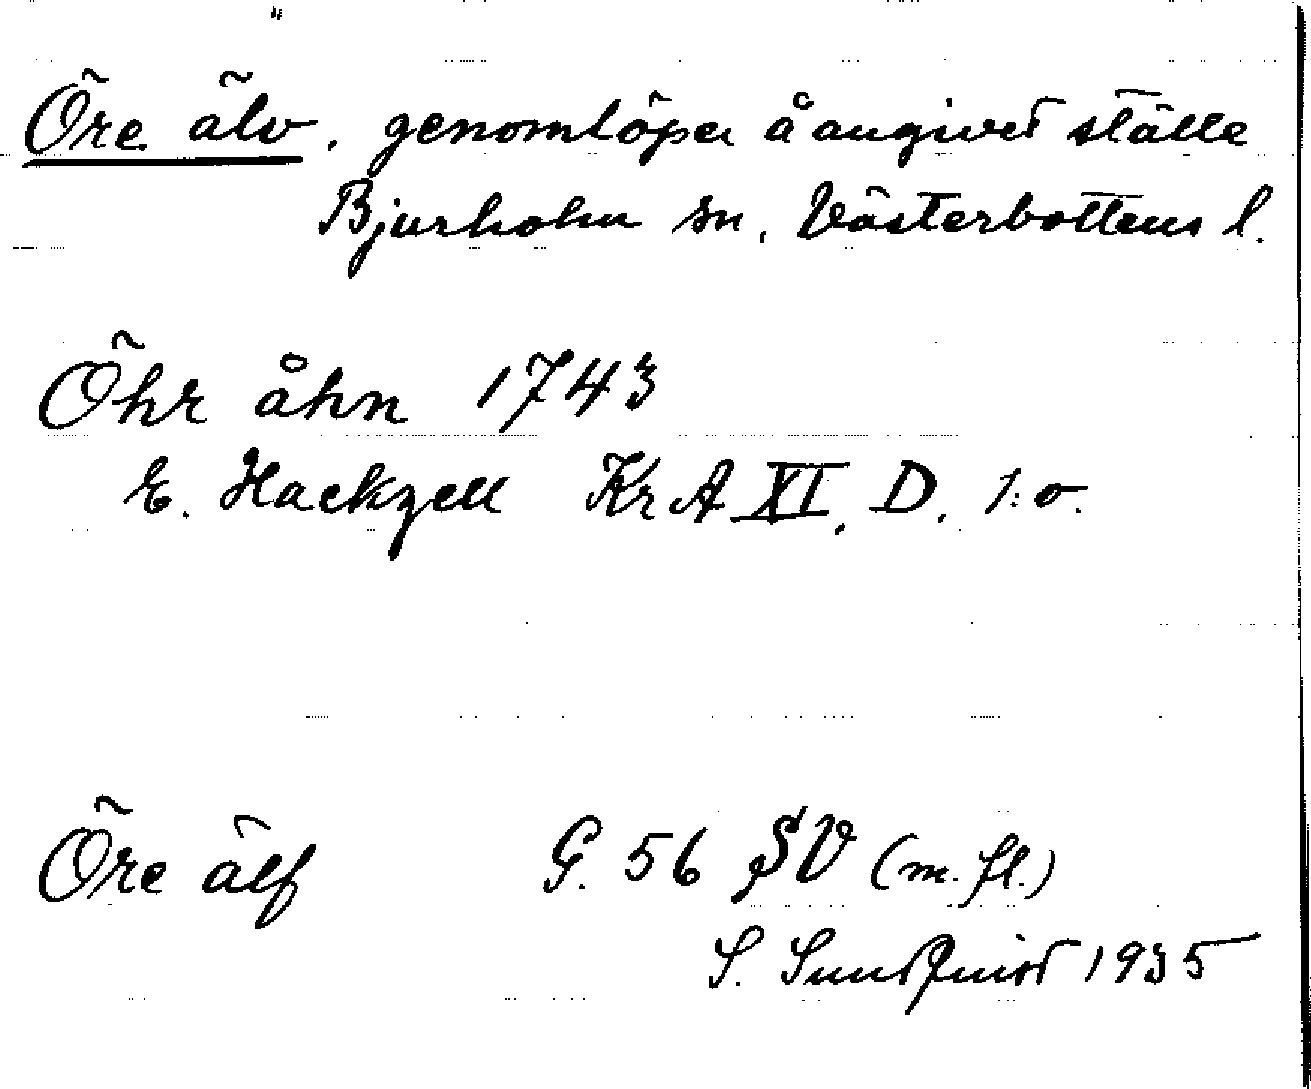 Öre älv, genomlöper å angivet ställe
Bjurholm sn, Västerbottens l.
Öhr åhn 1743
E. Hackzell KrA XI. D. 1:o.
Öre älf G. 56 SV (m. fl.)
S. Sundquist 1935